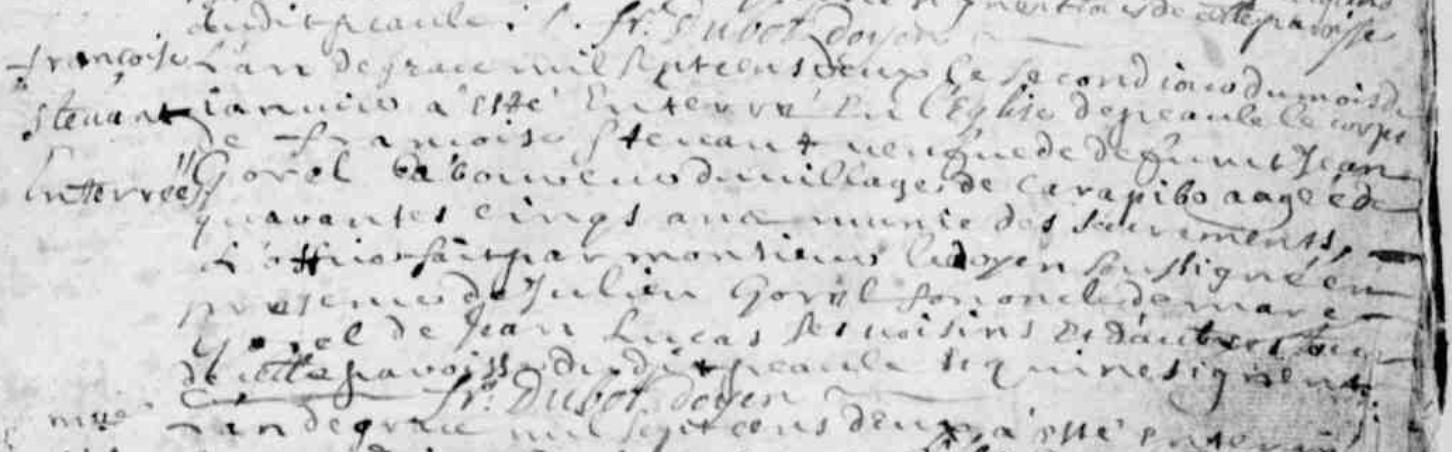 dudit peaule. fr. Dubot doyen
de cette paroisse
francoise L'an de grace mil sept cens deux le second iour du mois de
stevant ianvier a esté Enterré En l'Eglise de peaule le corps
de francoise stevant veufue de defunct Jean
Enterrée Gorel laboureur du village de Carapibo aagée de
quarantes cinqs ans munie des sacrements,
L'office fait par monsieur le doyen soussigné en
presence de Julien Gorel son oncle de marc
Gorel de Jean Lucas ses voisins Et d'autres tous
de cette paroisse dudit peaule qui ne signent.
fr. Dubot doyen
L'an de grace mil sept cens deux a esté enterré